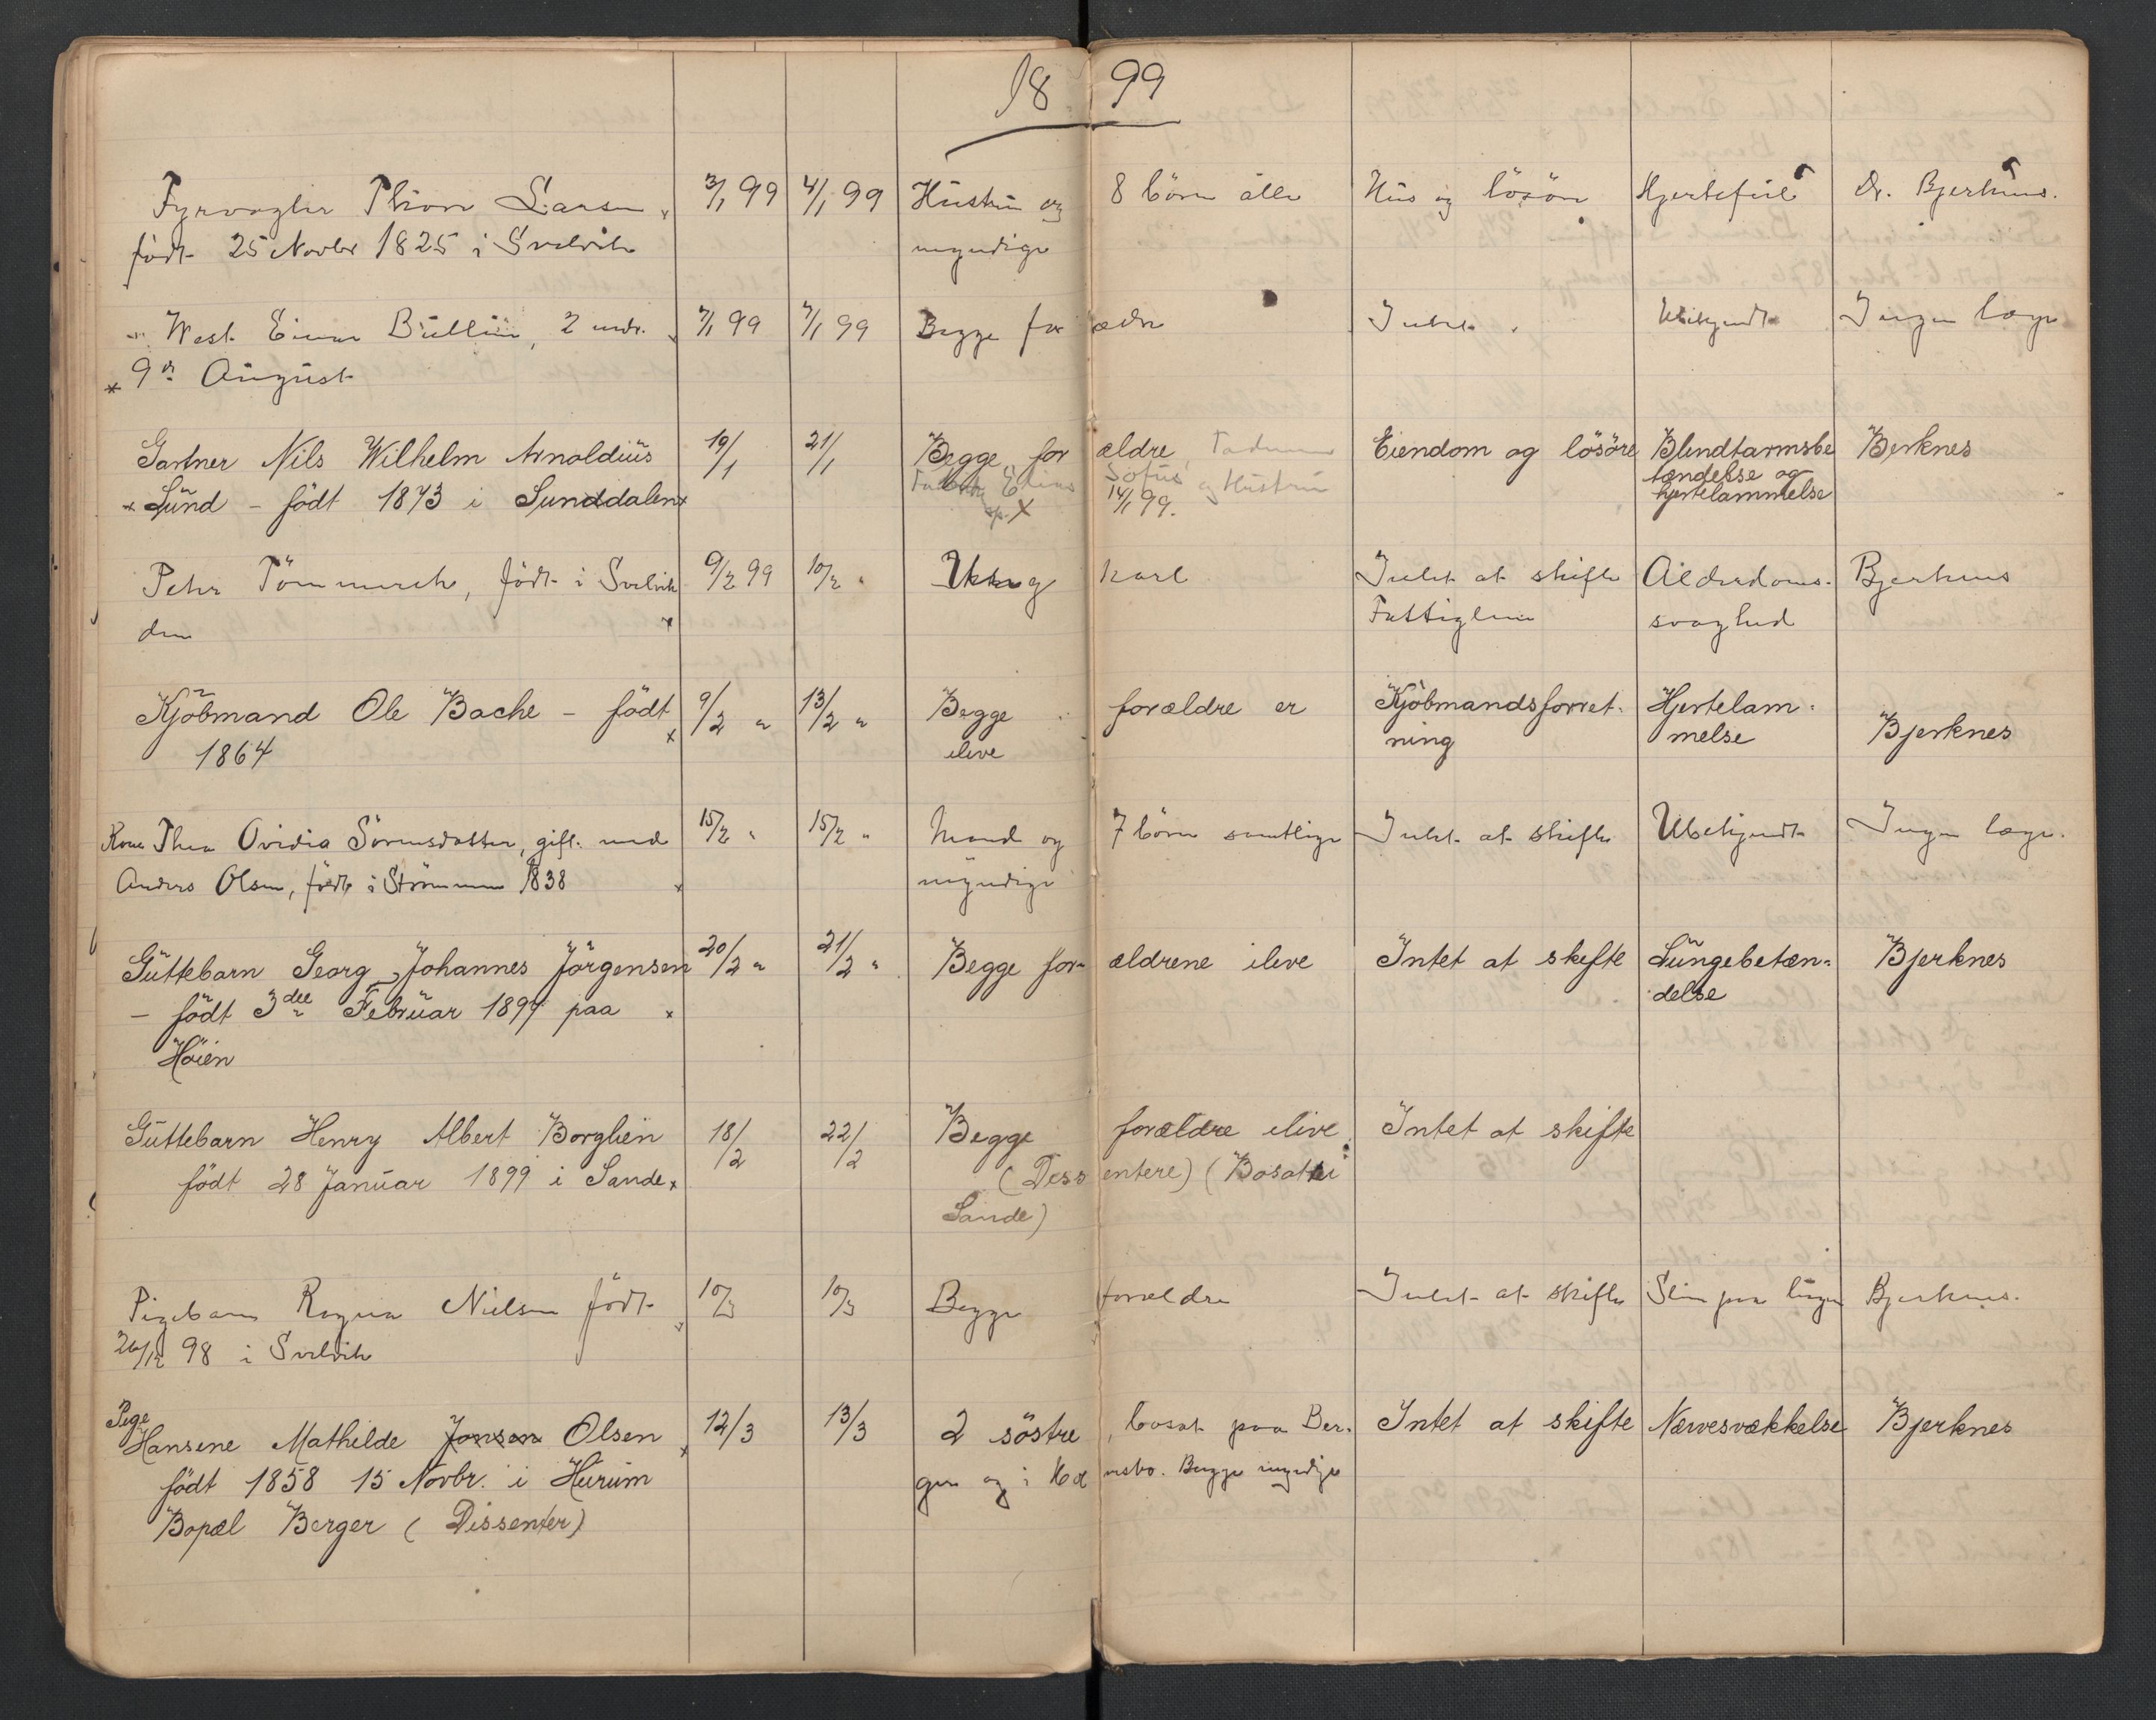 1899
Fyrvogter Larsen 3/1 99 4/1 99 Hustru og 8 börn alle Hus og lösöre Hjertefeil Dr. Bjerknes.
født 25 Novbr 1825 i Svelvik myndige
West Einar Bullin, 2 7/1 99 7/1 99 Begge forældre Intet Ubekjendt Ingen læge
9de August
Gartner Nils Wilhelm Arnoldius 19/1 21/1 Begge forældre Eiendom og lösöre Blindtarmsbe Berknes
Lund - født 1873 i Sunddalen Sofus og Hustru tændelse og
14/1 99. hjertelammelse
Peter födt i Svelvik 9/2 99 10/2 " karl Intet at skifte Alderdoms- Bjerknes
den Fattiglem svaghed
Kjöbmand Ole Bache - födt 9/2 " 13/2 " Begge forældre er Kjöbmandsforret- Hjertelam- Bjerknes
1864 ilive ning melse
Kone Thea Ovidia Sörensdatter, gift med 15/2 " 15/2 " Mand og 7 börn samtlige Intet at skifte Ubekjendt Ingen læge.
Anders Olsen, födt i Strömmen 1838 myndige
Guttebarn Georg Johannes Jörgensen 20/2 " 21/2 " Begge forældrene ilive Intet at skifte Lungebetæn-
delse Bjerknes
- födt 3die Februar 1899 paa
Höien
Guttebarn Henry Albert Borglien 18/2 22/2 Begge forældre ilive Intet at skifte
födt 28 Januar 1899 i Sande (Dessentere) (Bosatte i
Sande)
Pigebarn Ragna Nielsen födt 10/3 10/3 Begge forældre Intet at skifte Slim paa lunger Bjerknes.
26/12 98 i Svelvik
Pige
Hansine Mathilde Jonsen Olsen 12/3 13/3 2 söstre, bosat paa Ber- Intet at skifte Nervesvækkelse Bjerknes
födt 1858 15 Novbr. i Hurum ger og i Begge myndige
Bopæl Berger (Dissenter)